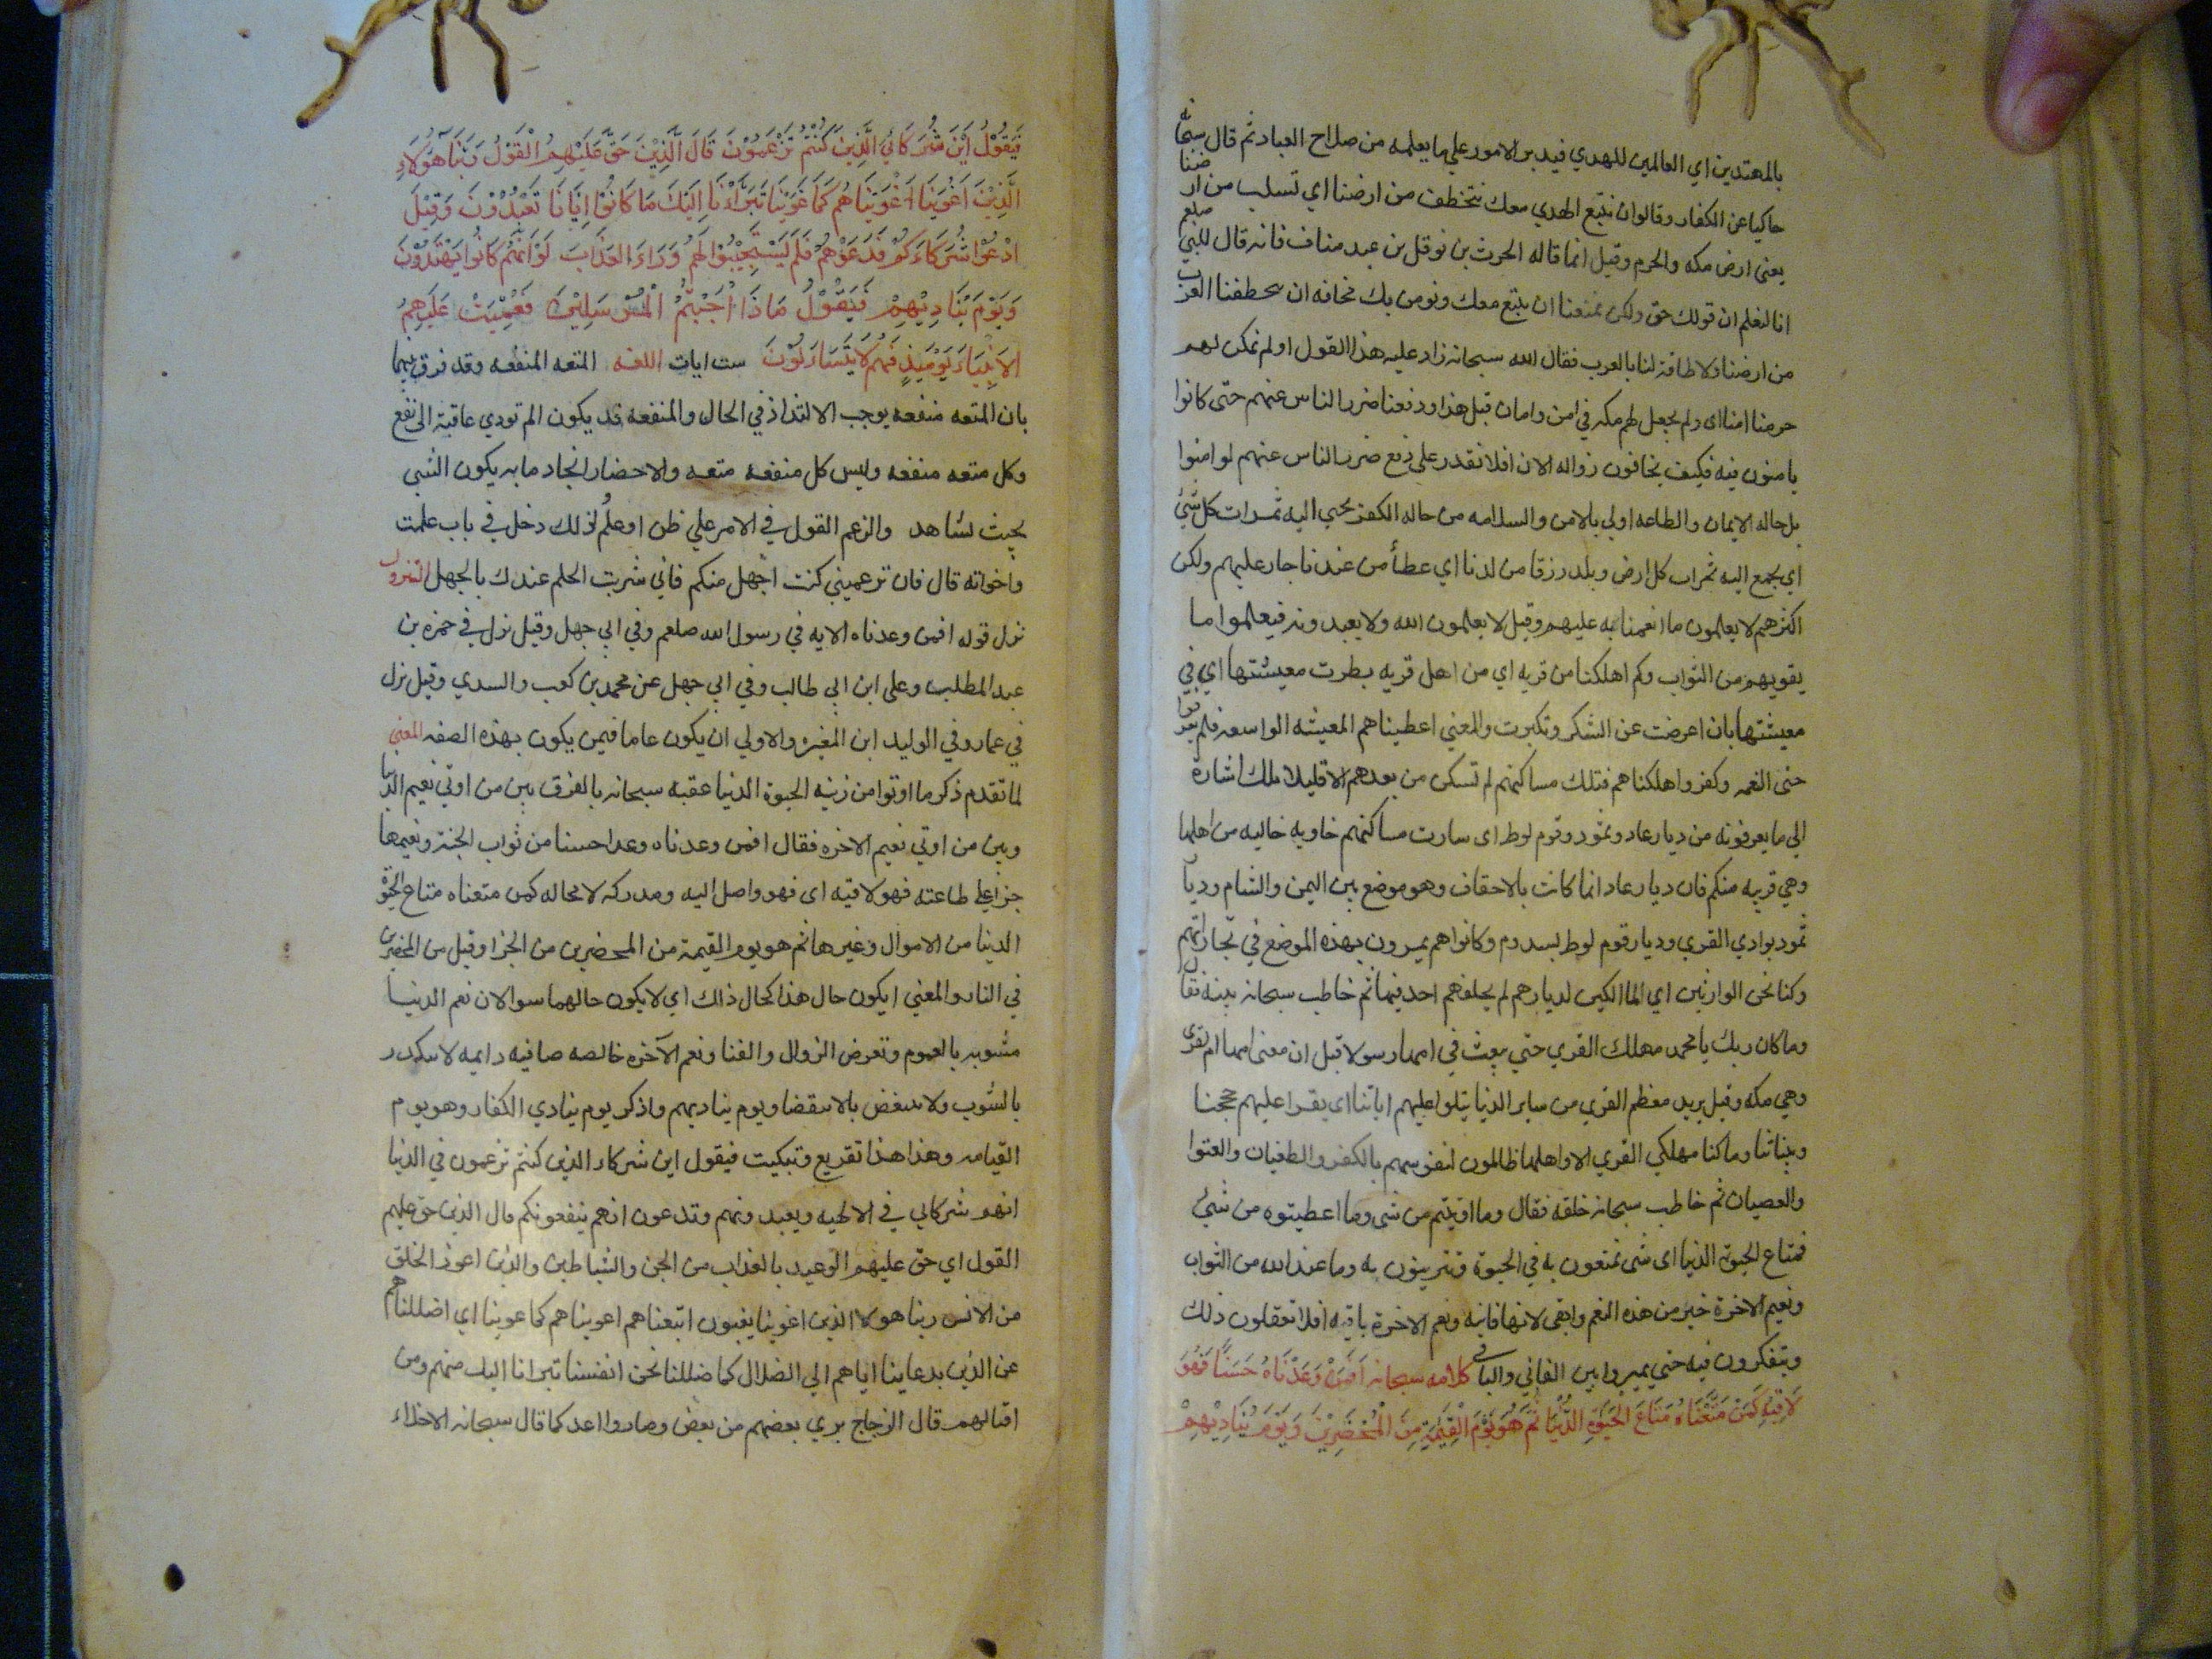 بالمهتدين اي العالمين للهدي فيدبر الامور علي ما يعلمه من صلاح العباد ثم قال سبحانه
حاكيا عن الكفار وقالوا ان نتبع الهدي معك نتخطف من ارضنا اي نسلب من ارضنا
يعني ارض مكه والحرم وقيل انما قاله الحرث بن نوفل بن عبد مناف فانه قال للنبي صلعم
انا لنعلم ان قولك حق ولكن يمنعنا ان نتبع معك ونومن بك مخافه ان يتخطفنا العرب
من ارضنا ولا طاقة لنا بالعرب فقال الله سبحانه زاد عليه هذا القول اولم نمكن لهم
حرمنا امنا اي ولم يجعل لهم مكه في امن وامان قبل هذا ودفعنا ضرر الناس عنهم حتي كانوا
يامنون فيه فكيف يخافون زواله الان افلا نقدر علي دفع ضرر الناس عنهم لو امنوا
بل حاله الايمان والطاعه اولي بالامن والسلامه من حاله الكفر يجبي اليه ثمرات كل شي
اي يجمع اليه ثمرات كل ارض وبلد رزقا من لدنا اي عطأ من عندنا جار عليهم ولكن
اكثرهم لا يعلمون ما انعمنا به عليهم وقيل لا يعلمون الله ولا يعبدونه فيعلموا ما
يفوتهم من الثواب وكم اهلكنا من قريه اي من اهل قريه بطرت معيشتها اي في
معيشتها بان اعرضت عن الشكر وتكبرت والمعني اعطيناهم المعيشه الواسعه فلم يعرفوا
حق النعمه وكفروا اهلكناهم فتلك مساكنهم لم تسكن من بعدهم الا قليلا تلك اشارة
الي ما يعرفونه من ديار عاد وثمود وقوم لوط اي سارت مساكنهم خاويه خاليه من اهلها
وهي قريبه منكم فان ديار عاد انما كانت بالاحقاف وهو موضع بين اليمن والشام وديار
ثمود بوادي القري وديار قوم لوط بسدوم وكانوا هم يمرون بهذه الموضع في تجاراتهم
وكنا نحن الوارثين اي الماالكين لديارهم لم يخلفهم احد فيها ثم خاطب سبحانه نبيه فقال
وما كان ربك يا محمد مهلك القري حتي يبعث في امها رسولا قيل ان معني امها ام القرى
وهي مكه وقيل يريد معظم القري من ساير الدنيا يتلوا عليهم اياتنا اي يقرا عليهم حججنا
وبيناتنا وما كنا مهلكي القري الا واهلها ظالمون لنفوسهم بالكفر والطغيان والعتوا
والعصيان ثم خاطب سبحانه خلقه فقال وما اوتيتم من شي وما اعطيتوه من شي
فمتاع الحيوة الدنيا اي شي تمتعون به في الحيوة وتتزينون به وما عند الله من الثواب
ونعيم الاخرة خير من هذه النعم وابقي لانها فانيه ونعم الاخرة باقيه افلا تعقلون ذلك
وتتفكرون فيه حتي يميزوا بين الفاني والباقي كلامه سبحانه اَفَمَنْ وَعَدْنَاهُ حَسَنًا فَهُوَ
لَاقِيْهِ كَمَنْ مَتَّعْنَاهُ مَتَاعَ الْحَيَوةِ الدُّنْيَا ثُمَّ هُوَ يَوْمَ الْقِيٰمَةِ مِنَ الْمُحْضَرِيْنَ وَيَوْمَ يُنَادِيْهِمْ
فَيَقُوْلُ اَيْنَ شُرَكَائِيَ الَّذِيْنَ كُنْتُمْ تَزْعُمُوْنَ قَالَ الَّذِيْنَ حَقَّ عَلَيْهِمُ الْقَوْلُ رَبَّنَا هٰؤُلَاءِ
الَّذِيْنَ اَغْوَيْنَا اَغْوَيْنَاهُمْ كَمَا غَوَيْنَا تَبَرَّأْنَا اِلَيْكَ مَا كَانُوْا اِيَّانَا تَعْبُدُوْنَ وَقِيْلَ
ادْعُوْا شُرَكَاءَكُمْ فَدَعَوْهُمْ فَلَمْ يَسْتَجِيْبُوْا لَهُمْ وَرَاَوَا الْعَذَابَ لَوْ اَنَّهُمْ كَانُوا يَهْتَدُوْنَ
وَيَوْمَ يُنَادِيْهِمْ فَيَقُوْلُ مَاذَا اَجَبْتُمُ الْمُرْسَلِيْنَ فَعَمِيَتْ عَلَيْهِمُ
الاَنْبِيَاءَ يَوْمَئِذٍ فَهُمْ لَا يَتَسَاءَلُوْنَ ست ايات اللغه المتعه المنفعه وقد فرق بينهما
بان المتعه منفعه يوجب الالتذاذ في الحال والمنفعه قد يكون الم تودي عاقبة الى نفع
وكل متعه منفعه وليس كل منفعه متعه والاحضار ايجاد ما به يكون الشي
بحيث يشاهد والزعم القول في الامر علي ظن او علم لذلك دخل في باب علمت
واخواته قال فان تزعميني كنت اجهل منكم فاني شريت الحلم عندك بالجهل النزول
نزل قوله افمن وعدناه الايه في رسول الله صلعم وفي ابي جهل وقيل نزل في حمزه بن
عبد المطلب وعلي ابن ابي طالب وفي ابي جهل عن محمد بن كعب والسدي وقيل نزل
في عمار وفي الوليد ابن المغيرة والاولي ان يكون عاما فيمن يكون بهذه الصفه المعني
لما تقدم ذكر ما اوتوا من زينه الحيوة الدنيا عقبه سبحانه بالفرق بين من اوتي نعيم الدنيا
وبين من اوتي نعيم الاخره فقال افمن وعدناه وعدا حسنا من ثواب الجنة ونعيمها
جزا علي طاعته فهو لاقيه اي فهو واصل اليه ومدركه لا محاله كمن متعناه متاع الحيوة
الدنيا من الاموال وغيرها ثم هو يوم القيمة من المحضرين من الجزا وقيل من المحضرين
في النار والمعني ايكون حال هذا كحال ذاك اي لا يكون حالهما سوا لان نعم الدنيا
مشوبه بالهموم وتعرض الزوال والفنا ونعم الآخره خالصه صافيه دايمه لا تتكدر
بالشوب ولا تنغص بالانقضا ويوم يناديهم واذكر يوم ينادي الكفار وهو يوم
القيامه وهذا هذا تقريع وتبكيت فيقول اين شركاء الذين كنتم تزعمون في الدنيا
انهم شركائي في الالهيه ويعبدونهم وتدعون انهم ينفعونكم قال الذين حق عليهم
القول اي حق عليهم الوعيد بالعذاب من الجن والشياطين والذين اغووا الخلق
من الانس ربنا هولا الذين اغوينا يعنون اتبعناهم اغويناهم كما غوينا اي اضللناهم
عن الدين بدعاينا اياهم الي الضلال كما ضللنا نحن انفسنا تبرانا اليك منهم ومن
افعالهم قال الزجاج بري بعضهم من بعض وصاروا اعدا كما قال سبحانه الاخلاء